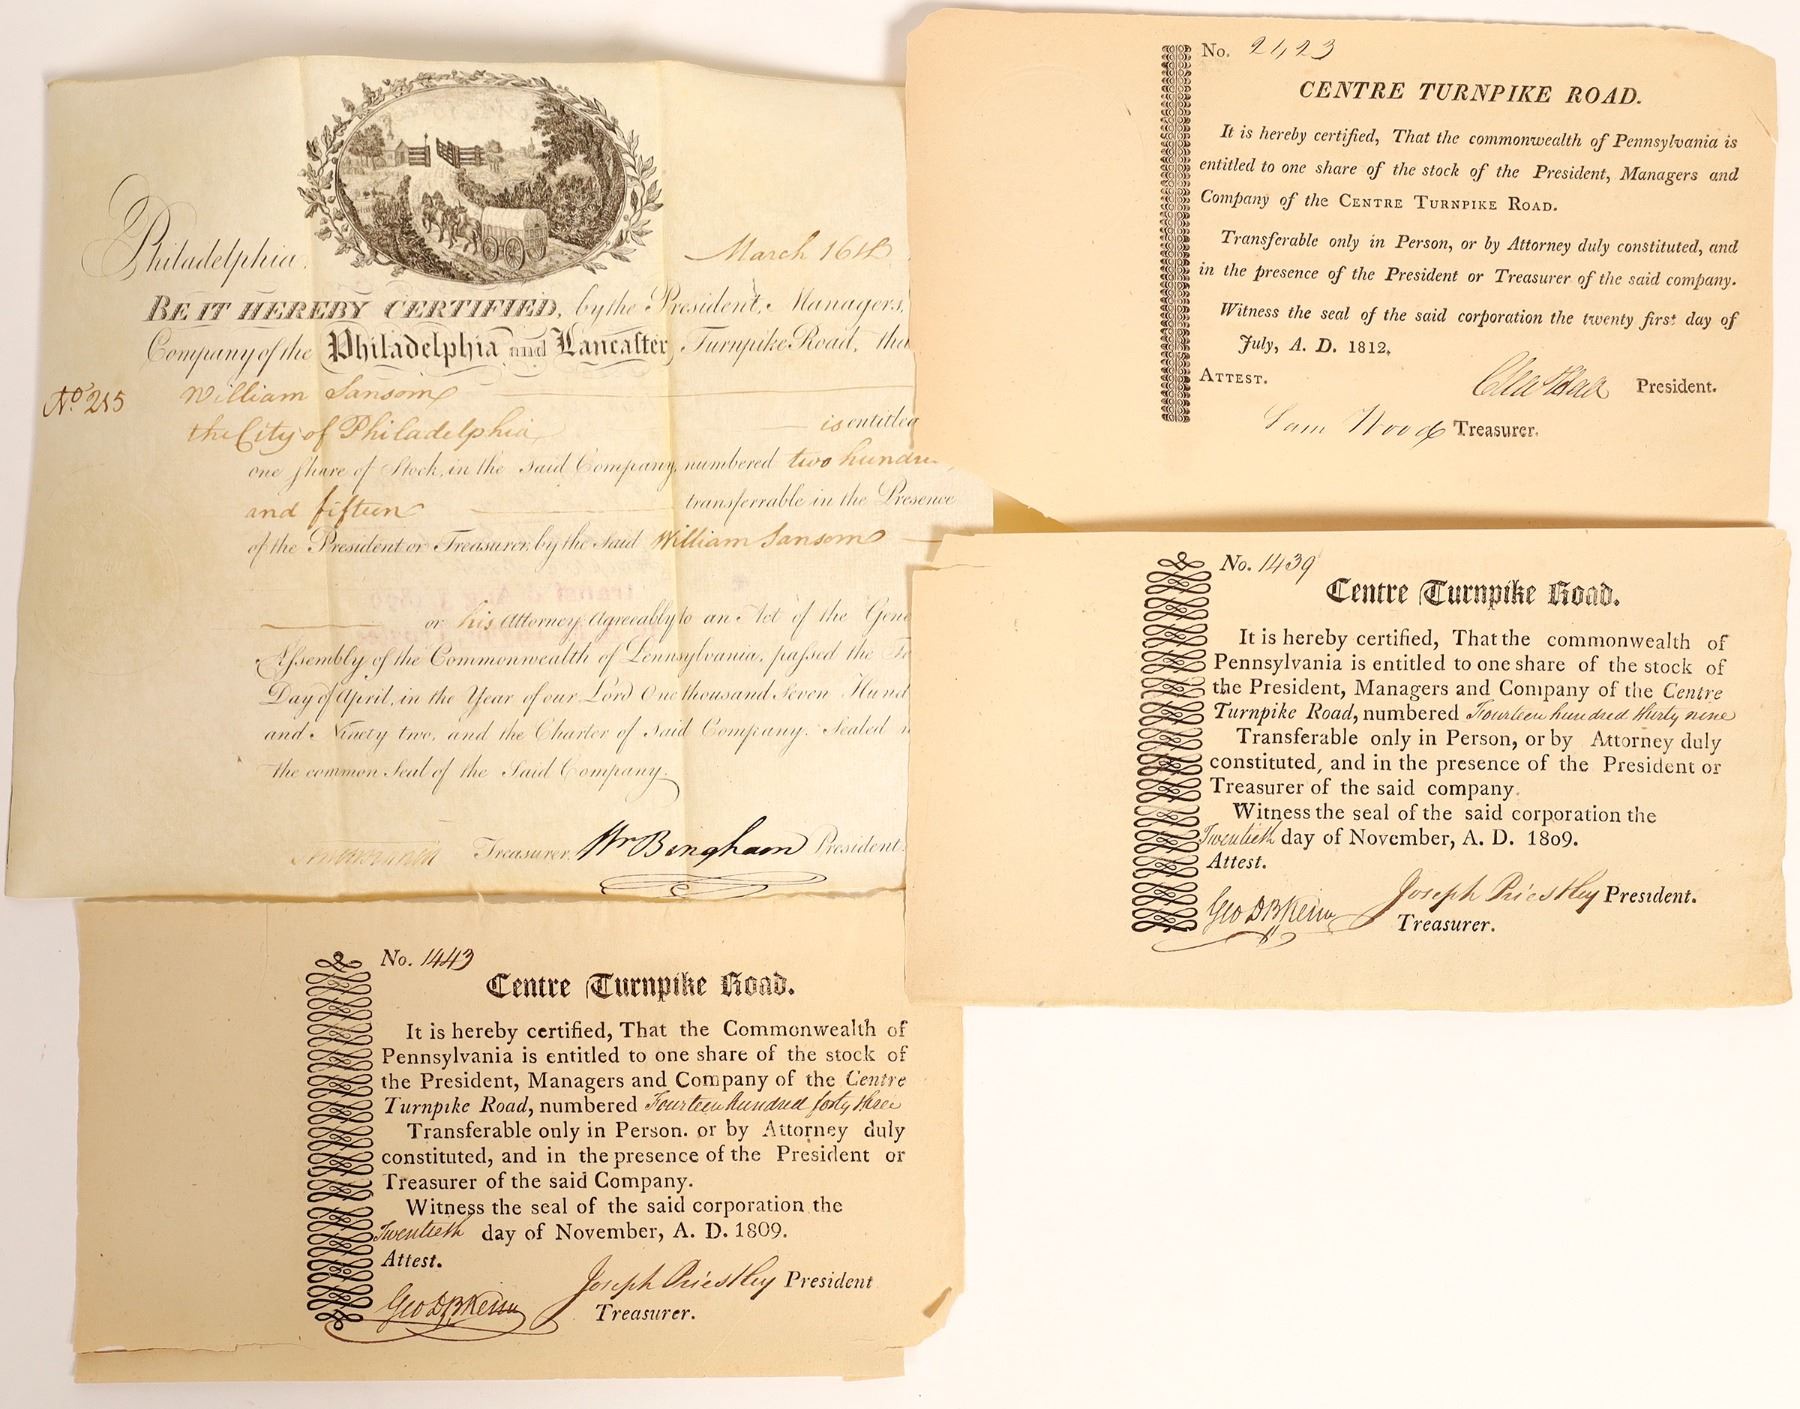 Philadelphia, March 16th
BE IT HEREBY CERTIFIED, by the President, Managers,
Company of the Philadelphia and Lancaster Turnpike Road, tha
No. 215 William Sansom
the City of Philadelphia is entitled
one share of Stock, in the Said Company, numbered two hundre
and fifteen transferrable in the Presence
of the President or Treasurer, by the said William Sansom
or his Attorney, Agreeably to an Act of the Gene
Assembly of the Commonwealth of Pennsylvania, passed the
Day of April, in the Year of our Lord One thousand Seven Hund
and Ninety two, and the Charter of Said Company. Sealed
the common Seal of the Said Company.
Treasurer. Wm Bingham President.
No. 2423
CENTRE TURNPIKE ROAD.
It is hereby certified, That the commonwealth of Pennsylvania is
entitled to one share of the stock of the President, Managers and
Company of the CENTRE TURNPIKE ROAD.
Transferable only in Person, or by Attorney duly constituted, and
in the presence of the President or Treasurer of the said company.
Witness the seal of the said corporation the twenty first day of
July, A. D. 1812.
ATTEST. President.
Sam Wood Treasurer.
No. 1439
Centre Turnpike Road.
It is hereby certified, That the commonwealth of
Pennsylvania is entitled to one share of the stock of
the President, Managers and Company of the Centre
Turnpike Road, numbered Fourteen hundred thirty nine
Transferable only in Person, or by Attorney duly
constituted, and in the presence of the President or
Treasurer of the said company.
Witness the seal of the said corporation the
Twentieth day of November, A. D. 1809.
Attest.
Joseph Priestley President.
Geo D B Keim Treasurer.
No. 1443
Centre Turnpike Road.
It is hereby certified, That the Commonwealth of
Pennsylvania is entitled to one share of the stock of
the President, Managers and Company of the Centre
Turnpike Road, numbered Fourteen hundred forty three
Transferable only in Person. or by Attorney duly
constituted, and in the presence of the President or
Treasurer of the said Company.
Witness the seal of the said corporation the
Twentieth day of November, A. D. 1809.
Attest.
Joseph Priestley President
Geo D B Keim Treasurer.